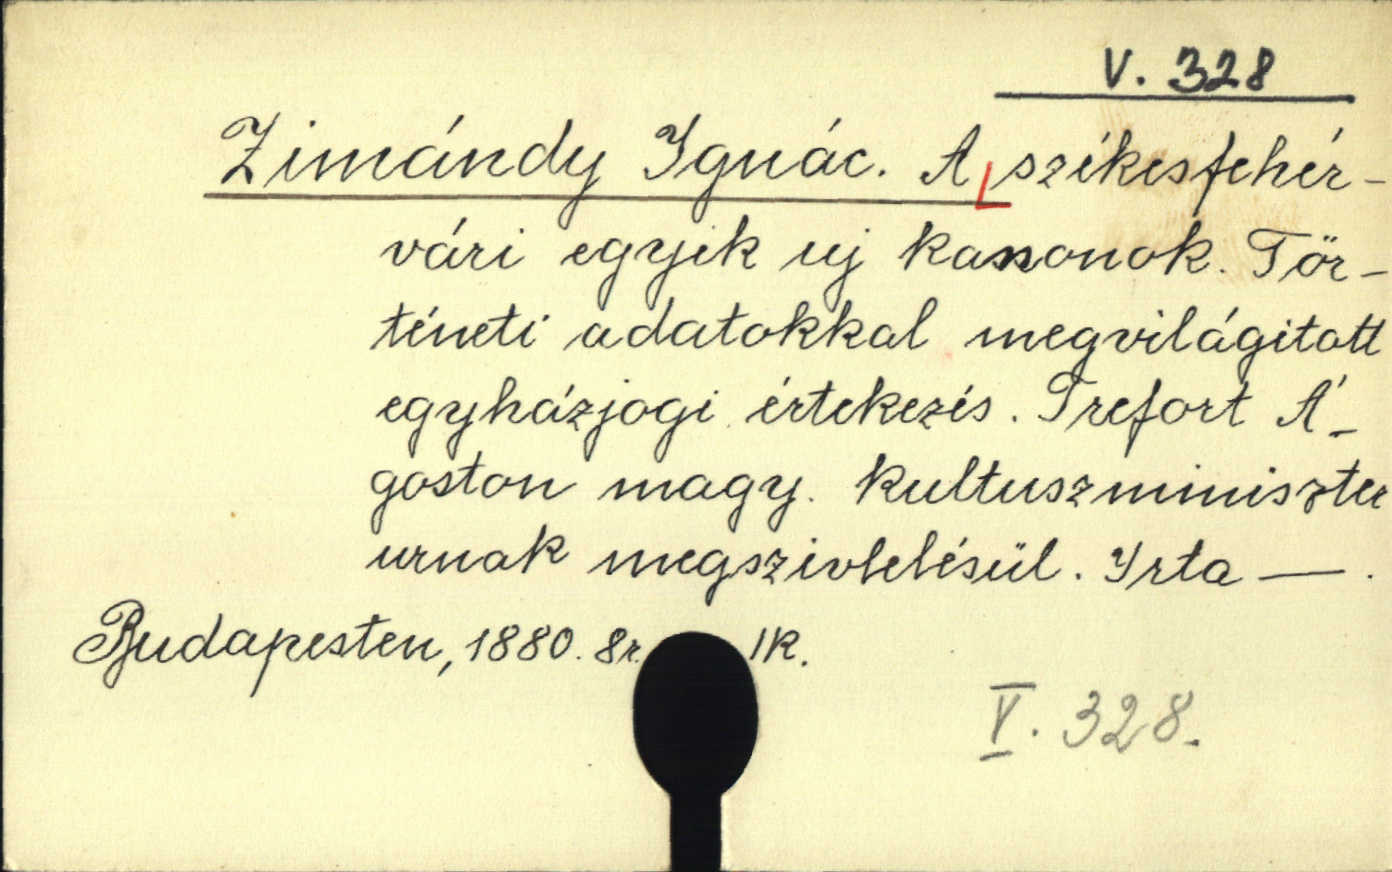 V. 328
Zimándy Ignác. A székesfehér-
vári egyik uj kanonok. Tör-
téneti adatokkal megvilágitott
egyházjogi értekezés. Trefort Á-
goston magy. kultuszminiszter
urnak megszivlelésül. Irta —.
Budapesten, 1880. 8r. 1K.
V. 328.